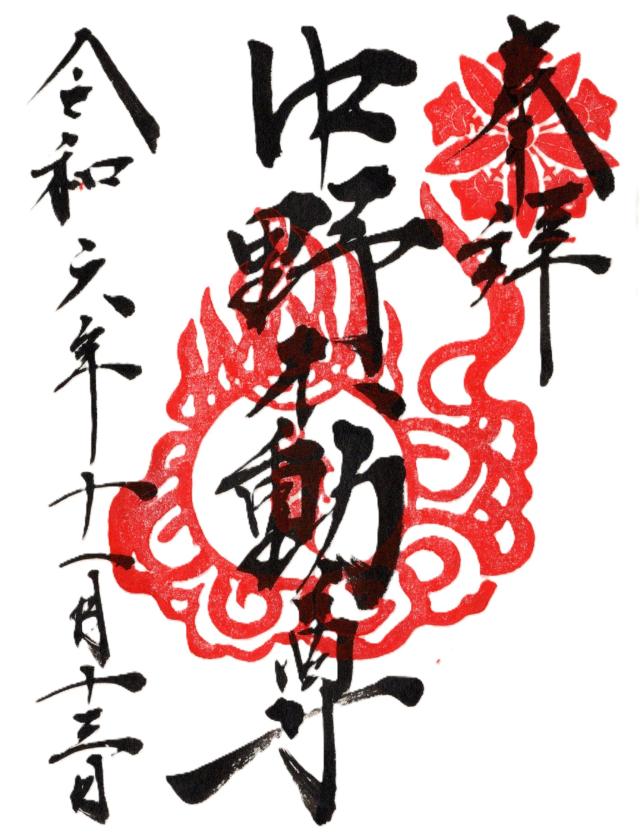 奉拝
中野不動尊
令和六年十一月十三日